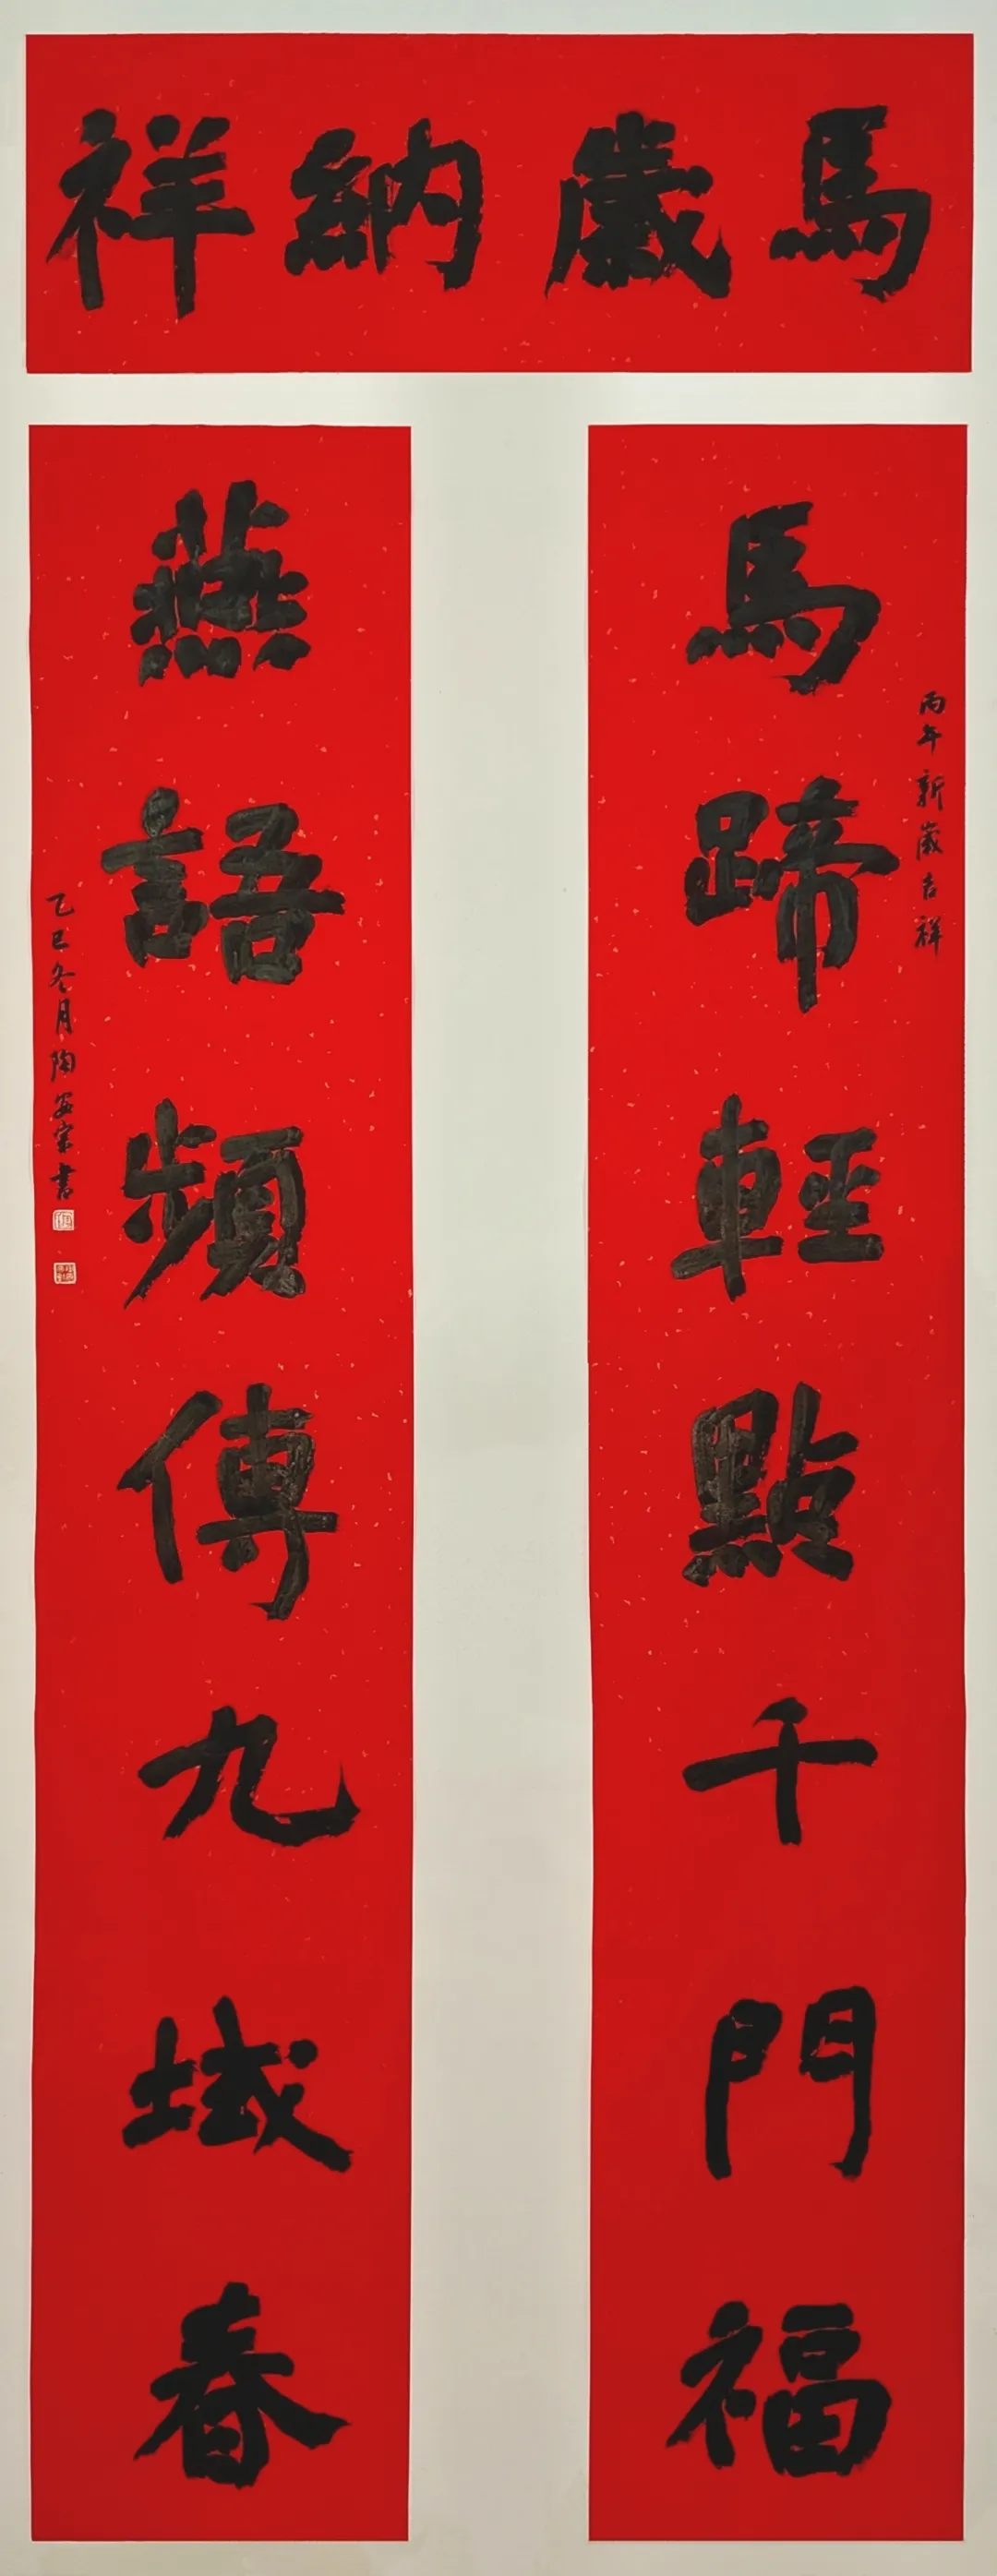 馬歲納祥
丙午新歲吉祥
馬蹄輕點千門福
燕語頻傳九域春
乙巳冬月陶安宗書